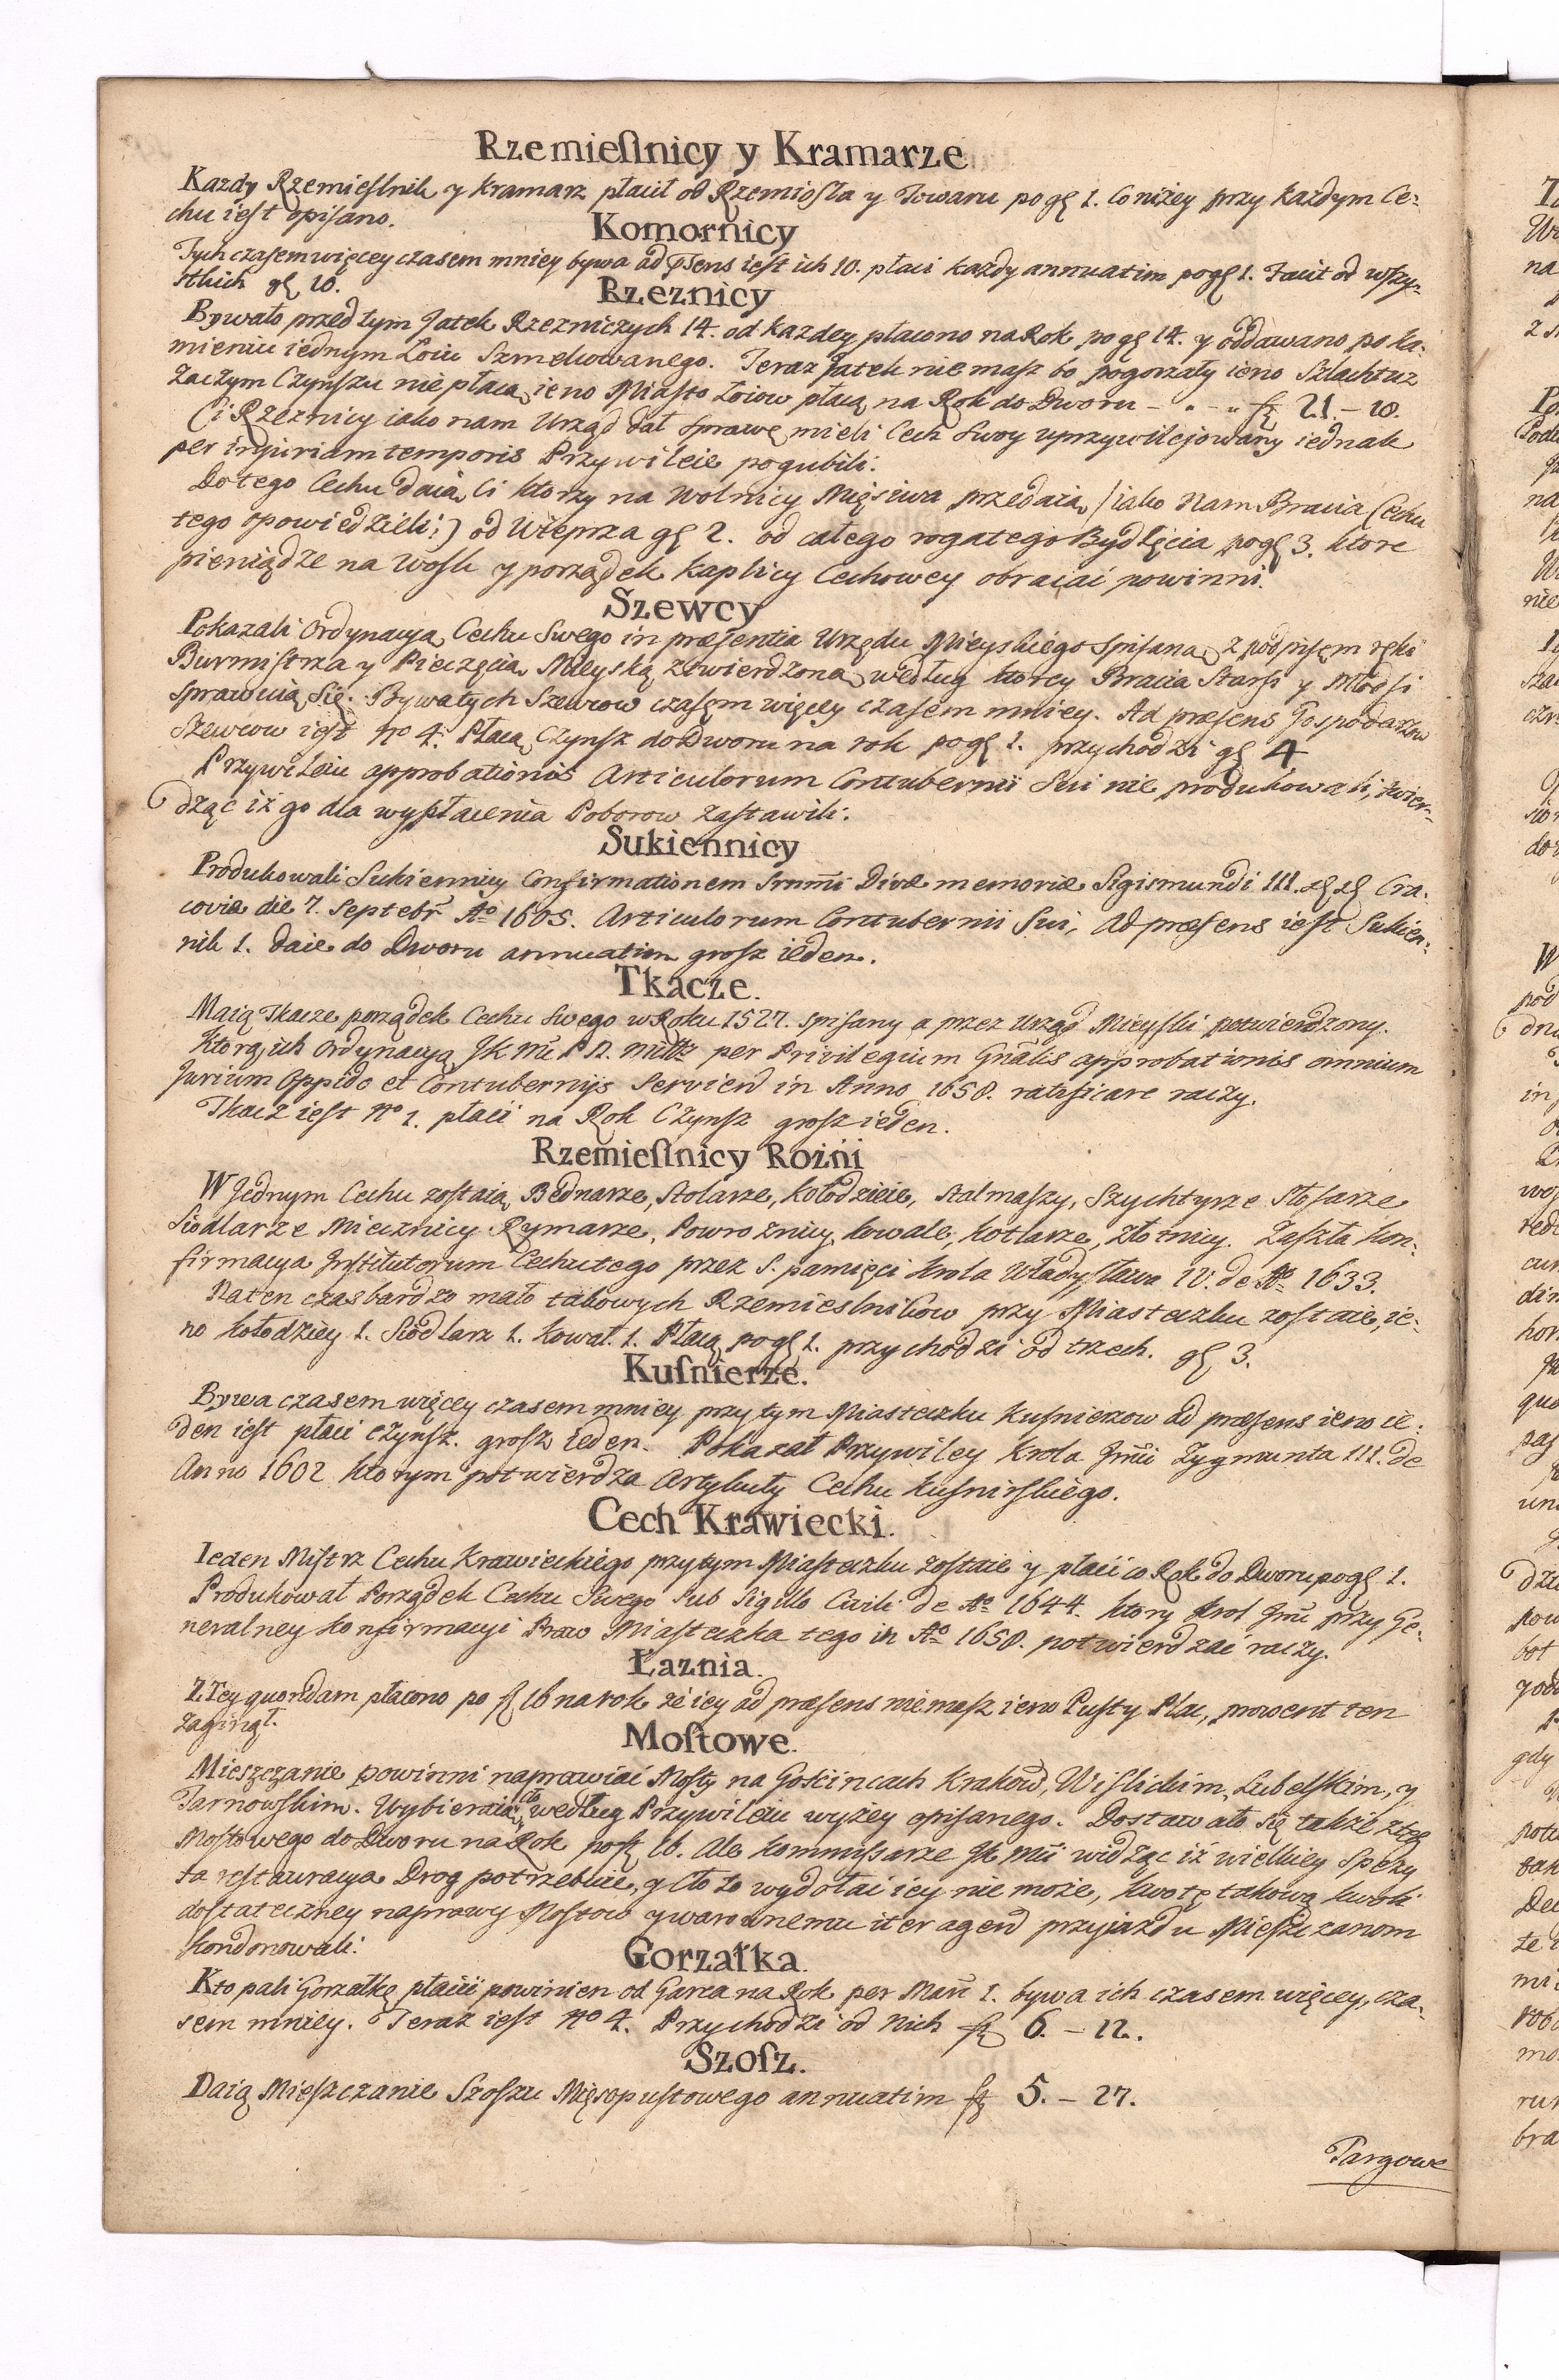 Rzemieſlnicy y Kramarze
Kazdy Rzemieſlnik y Kramarz płacił od Rzemiosła y Towaru po gſ 1. Co niżey przy każdym Ce-
chu ieſt opiſano.
Komornicy
Tych czaſem więcey czasem mniey bywa ad pſens ieſt ich 10. płaci każdy annuatim po gſ 1. Facit od wſzy-
ſtkich gſ 10.
Rzeznicy
Bywało przed tym Jatek Rzezniczych 14. od kazdey płacono na Rok po gſ 14. y oddawano po ka-
mieniu iednym Łoiu Szmelcowanego. Teraz Jatek nie masz bo pogorzały ieno Szlachtuz
Zaczym Czynſzu nie płacą, ieno Miaſto Łoiow płacą na Rok do Dworu - " - " fſ 21.- 10.
Ci Rzeznicy iako nam Urząd dał sprawę mieli Cech Swoy uprzywilejowany iednak
per injuriam temporis Przywileie pogubili.
Do tego Cechu daią Ci ktorzy na Wolnicy Mięsiwa przedaią /iako Nam Bracia Cechu
tego opowiedzieli:) od Wieprza gſ 2. od całego rogatego Bydlęcia po gſ 3. ktore
pieniądze na Woſk y porządek Kaplicy Cechowey obracać powinni.
Szewcy
Pokazali Ordynacyą Cechu Swego in præſentia Urzędu Mieyskiego Spiſaną, z podpiſem ręki
Burmiſtrza y Pieczęcią Mieyską ztwierdzoną według ktorey Bracia Starſi y Młodſi
sprawuią Się. Bywałych Szewcow czaſem więcey czasem mniey. Ad præsens Gospodarzow
Szewcow ieſt No 4. Płacą Czynsz do Dworu na rok po gſ 1. przychodzi gſ 4
Przywileiu approbationis Articulorum Contubernii Sui nie produkowali, twier-
dząc iż go dla wypłacenia Poborow zaſtawili.
Sukiennicy
Produkowali Sukiennicy Confirmationem Srnmi Divæ memoriæ Sigismundi III. Cra-
coviæ die 7. Septebr Ao 1605. Articulorum Contubernii Sui, Ad præſens ieſt Sukien-
nik 1. daie do Dworu annuatim groſz ieden.
Tkacze.
Maią Tkacze porządek Cechu Swego w Roku 1527. spiſany a przez Urząd Mieyſki potwierdzony.
Ktorą ich Ordynacyą JK Mć P N. Miłł per Privilegium Gnalis approbationis omnium
Jurium Oppido et Contubernijs Serviend in Anno 1658. ratificare raczy.
Tkacz ieſt No 1. płaci na Rok Czynſz groſz ieden.
Rzemieſlnicy Rożńi
W Jednym Cechu zoſtaią Bednarze, Stolarze, Kołodzieie, Stalmaſzy, Szychtyrze Sloſarze
Siodlarze Miecznicy Rymarze, Powroznicy, Kowale, Kotlarze, Złotnicy. Zaſzła Kon-
firmacya Inſtitutorum Cechu tego przez S. pamięci Krola Władyſława IV. de Ao 1633.
Na ten czas bardzo mało takowych Rzemieslnikow przy Miasteczku zoſtaie, ie-
no Kołodziey 1. Siodlarz 1. Kowal 1. Płacą po gſ 1. przychodzi od trzech. gſ 3.
Kuſnierze.
Bywa czasem więcey czasem mniey przy tym Miasteczku Kuſnierzow ad præsens ieno ie-
den ieſt płaci czynſz. groſz ieden. Pokazał Przywiley Krola Jmći Zygmunta III. de
Anno 1602 ktorym potwierdza Artykuły Cechu Kuſnirſkiego.
Cech Krawiecki.
Ieden Miſtrz Cechu Krawieckiego przy tym Miasteczku zoſtaie y płaci co Rok do Dworu po gſ 1.
Produkował Porządek Cechu Swego Sub Sigillo Civili de Ao 1644. ktory Krol Jmć przy Ge-
neralney Konfirmacyi Praw Miasteczka tego in Ao 1658. potwierdzać raczy.
Łaznia.
Z Tey quondam płacono po fſ 16 na rok że iey ad præsens nie masz ieno Puſty Plac, prowent ten
zaginął.
Moſtowe.
Mieszczanie powinni naprawiać Moſty na Gościncach Krakow, Wiſlickim, Lubelſkim, y
Tarnowſkim. Wybieraią cło według Przywileiu wyżey opiſanego. Dostawało się także z tego
Moſtowego do Dworu na Rok po fſ 16. Ale Kommiſsarze JK Mći widząc iż wielkiey Spezy
ta reſtauracya Drog potrzebuie, y Cło to wydołać iey nie może, kwotę takową kwoli
dostateczney naprawy Moſtow y warownemu iter agend przyjazdu Mieſzczanom
kondonowali.
Gorzałka.
Kto pali Gorzałkę płacić powinien od Garca na Rok per Mar 1. bywa ich czasem więcey, cza-
sem mniey. Teraz ieſt No 4. Przychodzi od Nich fſ 6. - 12.
Szoſz.
Daią Mieſzczanie Szoſzu Mięsopuſtowego annuatim fſ 5. - 27.
Targowe